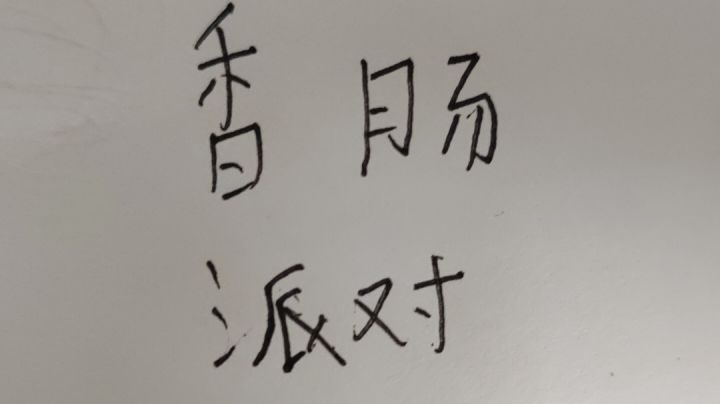 香肠
派对